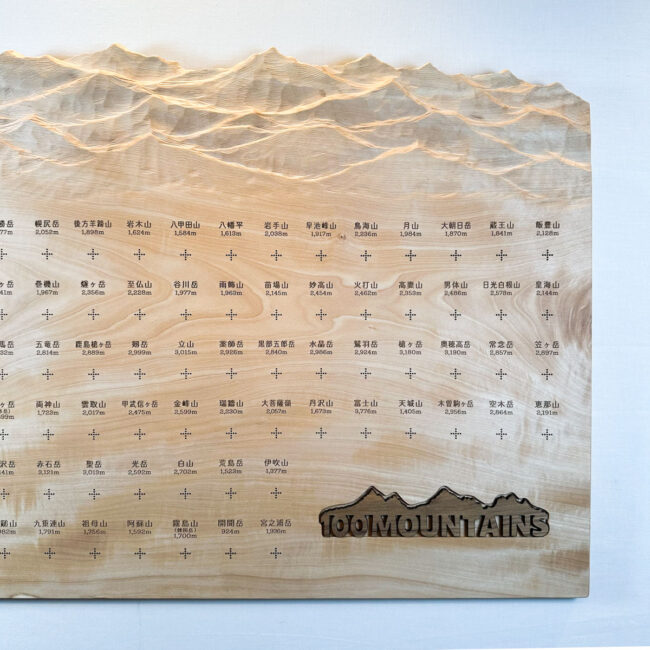 勝岳 幌尻岳 後方羊蹄山 岩木山 八甲田山 八幡平 岩手山 早池峰山 鳥海山 月山 大朝日岳 蔵王山 飯豊山
77m 2,052m 1,898m 1,624m 1,584m 1,613m 2,038m 1,917m 2,236m 1,984m 1,870m 1,841m 2,128m
ヶ岳 巻機山 燧ヶ岳 至仏山 谷川岳 雨飾山 苗場山 妙高山 火打山 高妻山 男体山 日光白根山 皇海山
41m 1,967m 2,356m 2,228m 1,977m 1,963m 2,145m 2,454m 2,462m 2,353m 2,486m 2,578m 2,144m
馬岳 五竜岳 鹿島槍ヶ岳 剱岳 立山 薬師岳 黒部五郎岳 水晶岳 鷲羽岳 槍ヶ岳 奥穂高岳 常念岳 笠ヶ岳
32m 2,814m 2,889m 2,999m 3,015m 2,926m 2,840m 2,986m 2,924m 3,180m 3,190m 2,857m 2,897m
ヶ岳 両神山 雲取山 甲武信ヶ岳 金峰山 瑞牆山 大菩薩嶺 丹沢山 富士山 天城山 木曽駒ヶ岳 空木岳 恵那山
99m 1,723m 2,017m 2,475m 2,599m 2,230m 2,057m 1,673m 3,776m 1,405m 2,956m 2,864m 2,191m
沢岳 赤石岳 聖岳 光岳 白山 荒島岳 伊吹山
41m 3,121m 3,013m 2,592m 2,702m 1,523m 1,377m
剣山 九重連山 祖母山 阿蘇山 霧島山 開聞岳 宮之浦岳
(韓国岳)
982m 1,791m 1,756m 1,592m 1,700m 924m 1,936m
100MOUNTAINS